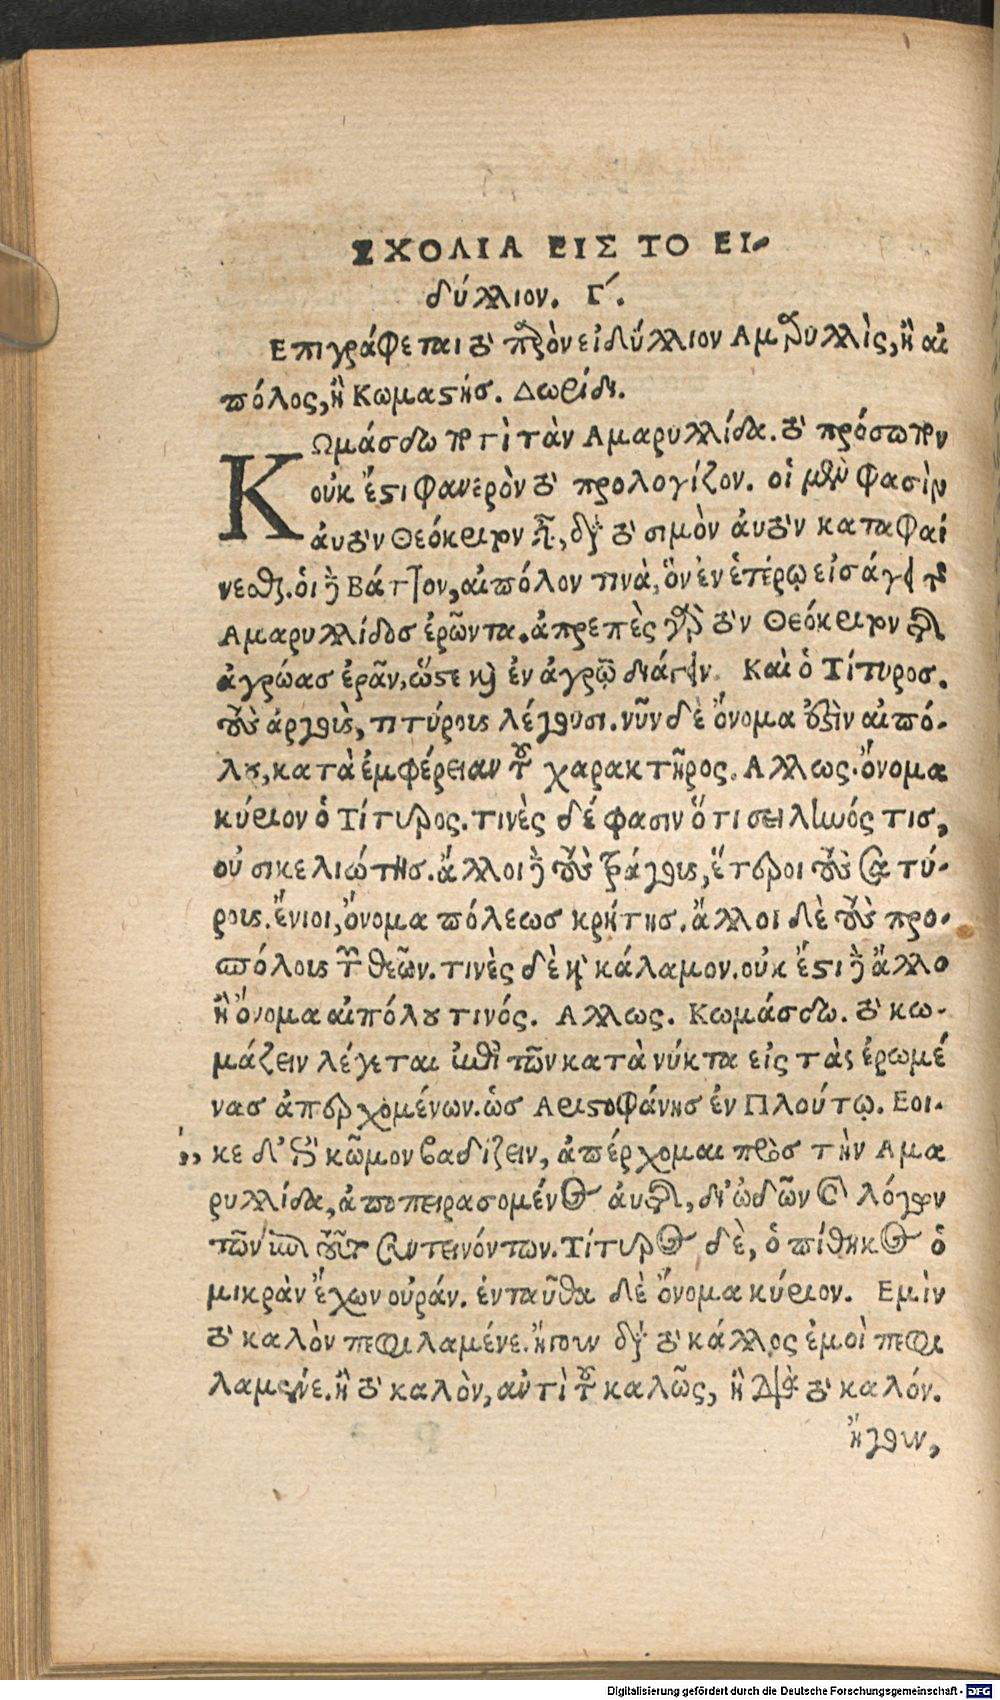 ΣΧΟΛΙΑ ΕΙΣ ΤΟ ΕΙ-
δύλλιον. Γ΄.
Επιγράφεται τὸ παρὸν εἰδύλλιον Αμαρυλλὶς, ἢ αἰ
πόλος, ἢ Κωμαστής. Δωρίδι.
ΚΩμάσδω ποτὶ τὰν Αμαρυλλίδα. τὸ πρόσωπον
οὐκ ἔστι φανερὸν τὸ προλογίζον. οἱ μὲν φασὶν
ἀυτὸν Θεόκριτον εἶναι, διὰ τὸ σιμὸν ἀυτὸν καταφαί
νεσθαι. ὁι δὲ Βάττον, αἰπόλον τινὰ, ὃν ἐν ἑτέρῳ εἰσάγει τῆς
Αμαρυλλίδος ἐρῶντα. ἀπρεπὲς γὰρ τὸν Θεόκριτον τῆς
ἀγρώας ἐρᾶν, ὥστε καὶ ἐν ἀγρῷ διάγειν. Καὶ ὁ Τίτυρος.
τοὺς ἀρχοὺς, τιτύρους λέγουσι. νῦν δὲ ὄνομα ἐστὶν αἰπό-
λου, κατὰ ἐμφέρειαν τοῦ χαρακτῆρος. Αλλως. ὄνομα
κύριον ὁ Τίτυρος. τινὲς δέ φασιν ὅτι σειληνός τις,
οὐ σικελιώτης. ἄλλοι δὲ τοὺς τράγους, ἕτεροι τοὺς Σατύ-
ρους. ἔνιοι, ὄνομα πόλεως κρήτης. ἄλλοι δὲ τοὺς προ-
πόλους τῶν θεῶν. τινὲς δὲ καὶ κάλαμον. οὐκ ἔστι δὲ ἄλλο
ἢ ὄνομα αἰπόλου τινός. Αλλως. Κωμάσδω. τὸ κω-
μάζειν λέγεται ἐπὶ τῶν κατὰ νύκτα εἰς τὰς ἐρωμέ
νας ἀπερχομένων. ὡς Αριστοφάνης ἐν Πλούτῳ. Εοι-
κε δ' ἐπὶ κῶμον βαδίζειν, ἀπέρχομαι πρὸς τὴν Αμα
ρυλλίδα, ἀποπειρασομένος ἀυτῆς, δι' ὠδῶν καὶ λόγων
τῶν εἰς τοῦτο συντεινόντων. Τίτυρος δὲ, ὁ πίθηκος ὁ
μικρὰν ἔχων οὐράν. ἐνταῦθα δὲ ὄνομα κύριον. Εμὶν
τὸ καλὸν πεφιλαμένε. ἤγουν διὰ τὸ κάλλος ἐμοὶ πεφι
λαμένε. ἢ τὸ καλὸν, αντὶ τοῦ καλῶς, ἢ διὰ τὸ καλόν.
ἤγουν,